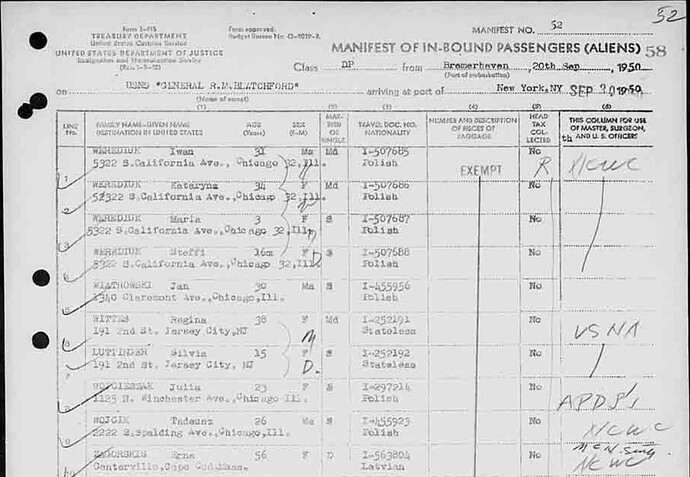 52
Form I-415
TREASURY DEPARTMENT
United States Customs Service
UNITED STATES DEPARTMENT OF JUSTICE
Immigration and Naturalization Service
Form approved.
MANIFEST NO. 52
MANIFEST OF IN-BOUND PASSENGERS (ALIENS) 58
Class DP from Bremerhaven, 20th Sep, 1950
(Port of embarkation)
on USNS "GENERAL R.M.BLATCHFORD" arriving at port of New York,NY SEP 30 1950
(Name of vessel)
(1) (2) (3) (4) (5) (6)
LINE No. FAMILY NAME-GIVEN NAME DESTINATION IN UNITED STATES AGE (Years) SEX (F-M) MARRIED OR SINGLE TRAVEL DOC. NO. NATIONALITY NUMBER AND DESCRIPTION OF PIECES OF BAGGAGE HEAD TAX COLLECTED THIS COLUMN FOR USE OF MASTER, SURGEON, AND U. S. OFFICERS
WEREDIUK Iwan 31 Ma Md I-507685 No
5322 S.California Ave., Chicago 32,Ill. Polish EXEMPT R NCWC
WEREDIUK Kateryna 34 F Md I-507686 No
52322 S.California Ave.,Chicago 32,Ill. Polish
WEREDIUK Maria 3 F S I-507687 No
5322 S.California Ave.,Chicago 32,Ill. Polish
WEREDIUK Steffi 16m F S I-507688 No
5322 S.California Ave.,Chicago 32,Ill. Polish
WIATROWSKI Jan 30 Ma S I-455956 No
1340 Claremont Ave.,Chicago,Ill. Polish
WITTES Regina 38 F Md I-252191 No
191 2nd St. Jersey City,NJ M Stateless USNA
LUTTINGER Silvia 15 F S I-252192 No
191 2nd St. Jersey City, NJ D. Stateless
WOJCIESZAK Julia 23 F S I-297214 No
1125 N. Winchester Ave.,Chicago Ill. Polish
WOJCIK Tadeusz 26 Ma S I-455923 No
2222 S.Spalding Ave.,Chicago,Ill. Polish NCWC
Erna 56 F D I-563804 No
Centerville,Cape Cod,Mass. Latvian NCWC